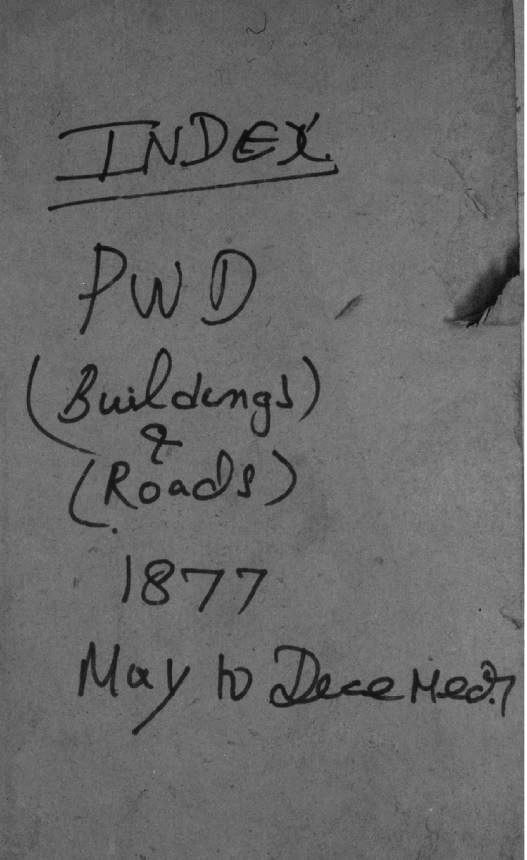 INDEX
PWD
(Buildings)
&
(Roads)
1877
May to Decemeber